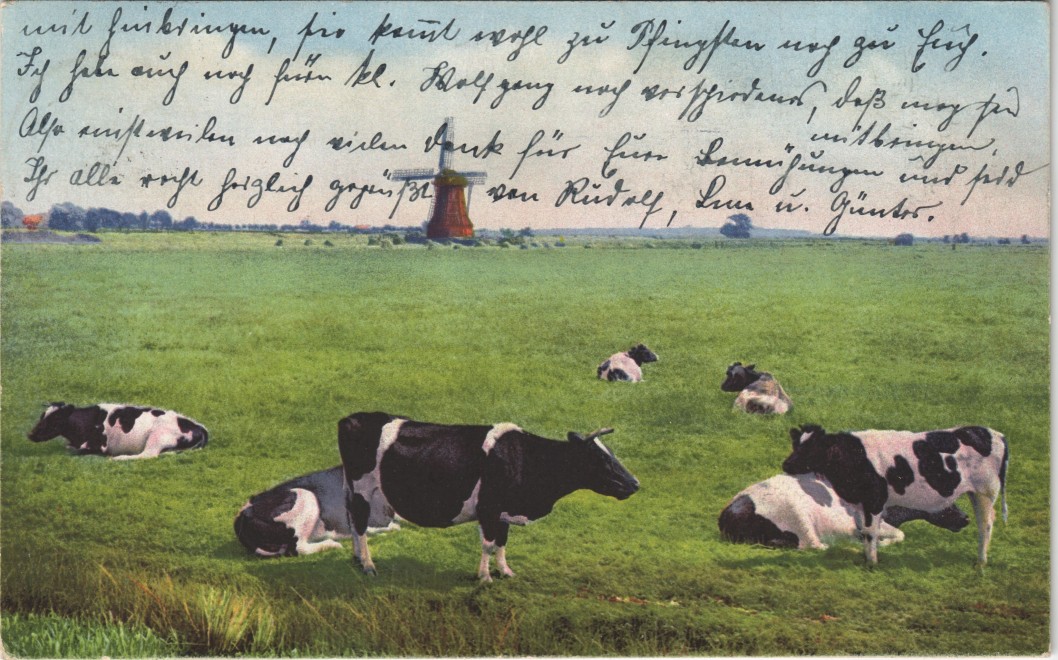 mit hinbringen, sie kom̄t wohl zu Pfingsten noch zu Euch.
Ich habe auch noch fürn kl. Wolfgang noch verschiedenes, daß mag sie
mitbringen.
Also einstweilen noch vielen Dank für Eure Bemühungen und seid
Ihr alle recht herzlich gegrüßt von Rudolf, u. Günter.